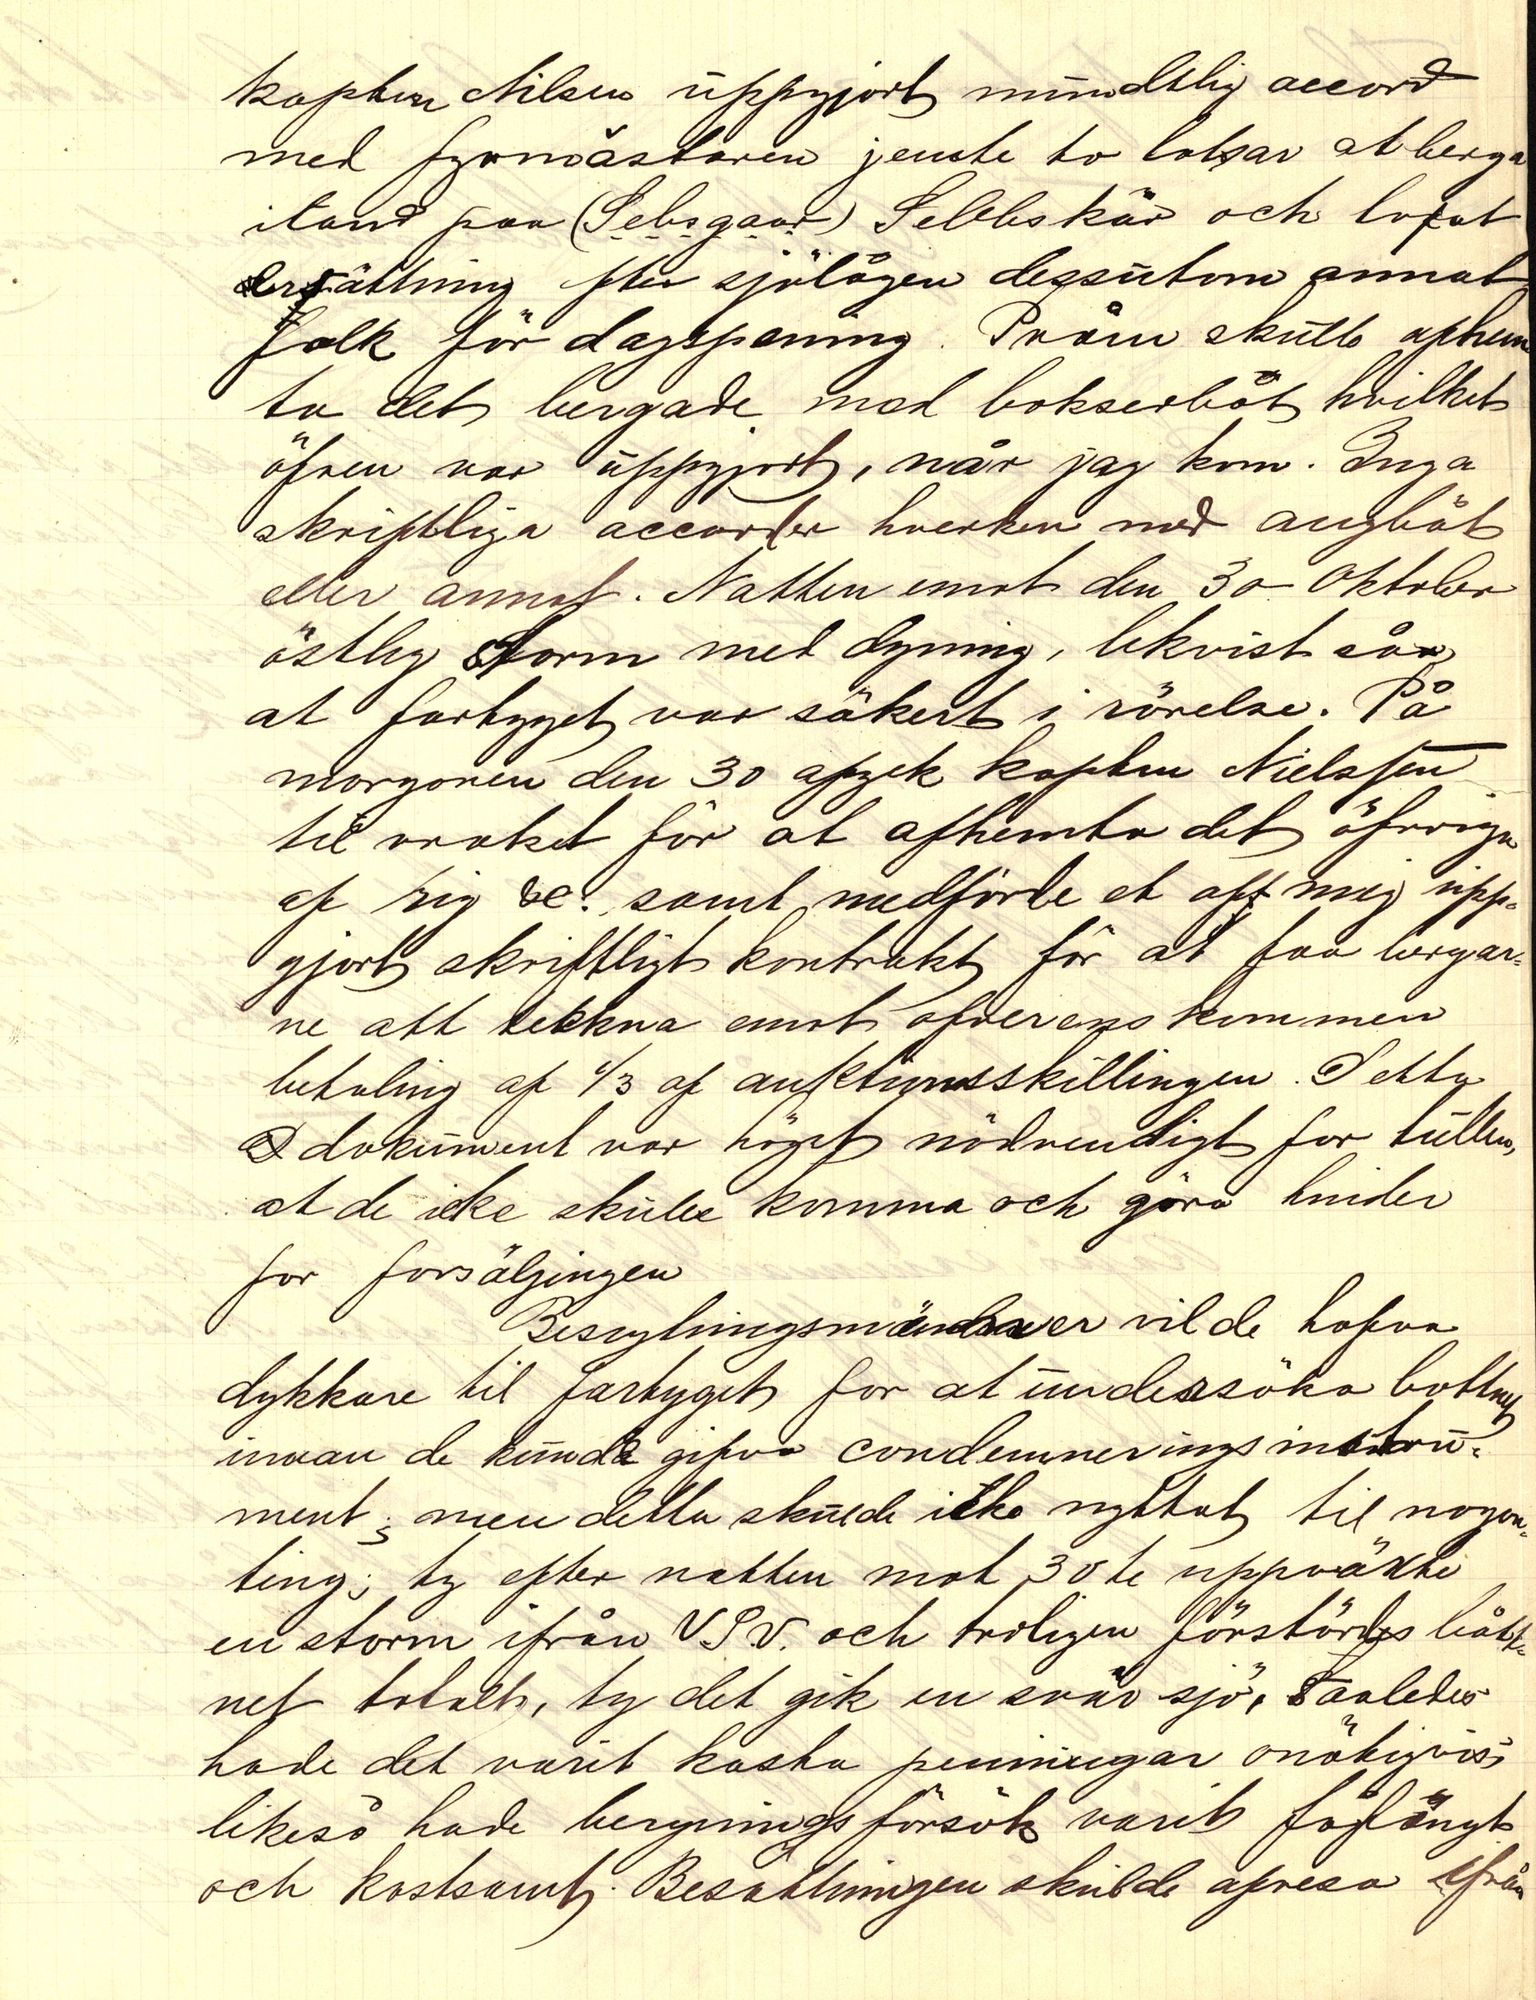 kapten Nilsen uppgjort mundtlig accord
med fyrmästaren jemte to lotsar at berga
iland paa (Sebsgaar) Sebbskär och lofvat
ersättning efter sjölagen dessutom annat
folk för dagspening. Pråm skulle afhem
ta det bergade med bokserbåt hvilket
öfven var uppgjort, når jag kom. Inga
skriftliga accorder hverken med angbåt
eller annat. Natten emot den 30 Oktober
östlig storm med dyning, likvist så
at fartyget var säkert i rörelse. På
morgonen den 30 afgek kapten Nielssen
til vraket för at afhemta det öfvriga
af rig &c. samt medförde et aff mig upp-
gjort skriftligt kontrakt för at faa bergar-
ne att tekkna emot öfverenskommen
betaling af 1/3 af auktionsskillingen. Detta
dokument var högst nödvendigt for tullen,
at de icke skulle komma och göra hinder
for forsäljingen
Besigtningsmänner vilde hafva
dykkare til fartyget for at undersöka bottnet
innan de kunde gifva condemnerings instru-
ment; men detta skulde ikke nyttat til nogon-
ting; ty efter natten mot 30te uppväxte
en storm ifrån VSV. och troligen förstördes bått-
net totalt, ty det gik en svår sjö, Saaledes
hade det varit kasta penningar onötigvis,
likeså hade bergnings försök varit fåfängt
och kostsamt. Besattningen skulde afresa ifrån